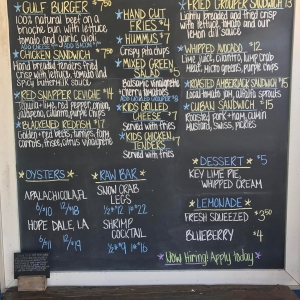 GULF BURGER $7.50
100% natural beef on a
brioche bun with lettuce,
tomato and garlic aioli
CHICKEN SANDWICH
Hand breaded tenders, fried
crisp with lettuce, tomato and
spicy buttermilk sauce
RED SNAPPER CEVICHE $14
Tequila + lime, red pepper, onion,
jalapeño, cilantro, purple chips
BLACKENED REDFISH $17
Golden + red beets, turnips, farm
carrots, frisee, citrus vinaigrette
OYSTERS
APALACHICOLA, FL
6/$10 12/$18
HOPE DALE, LA
6/$11 12/$19
HAND CUT
FRIES $4
HUMMUS $7
Crispy pita chips
MIXED GREEN
SALAD $5
Balsamic vinaigrette
cherry tomatoes
ADD GRILLED GROUPER $8
KIDS GRILLED
CHEESE $7
Served with fries
KIDS CHICKEN
TENDERS $7
Served with fries
RAW BAR
SNOW CRAB
LEGS
1/2# $12 1# $22
SHRIMP
COCKTAIL
1/2# $9 1# $16
FRIED GROUPER SANDWICH $13
Lightly breaded and fried crisp
with lettuce, tomato and our
lemon dill sauce
WHIPPED AVOCADO $12
Lime juice, cilantro, lump crab
meat, micro greens, purple chips
ROASTED AMBERJACK SANDWICH $15
local tomato jam, cilantro, sprouts
CUBAN SANDWICH $15
Roasted pork + ham, cumin
mustard, swiss, pickles
DESSERT $5
KEY LIME PIE,
WHIPPED CREAM
LEMONADE
FRESH SQUEEZED $3.50
BLUEBERRY $4
NOW Hiring! Apply today